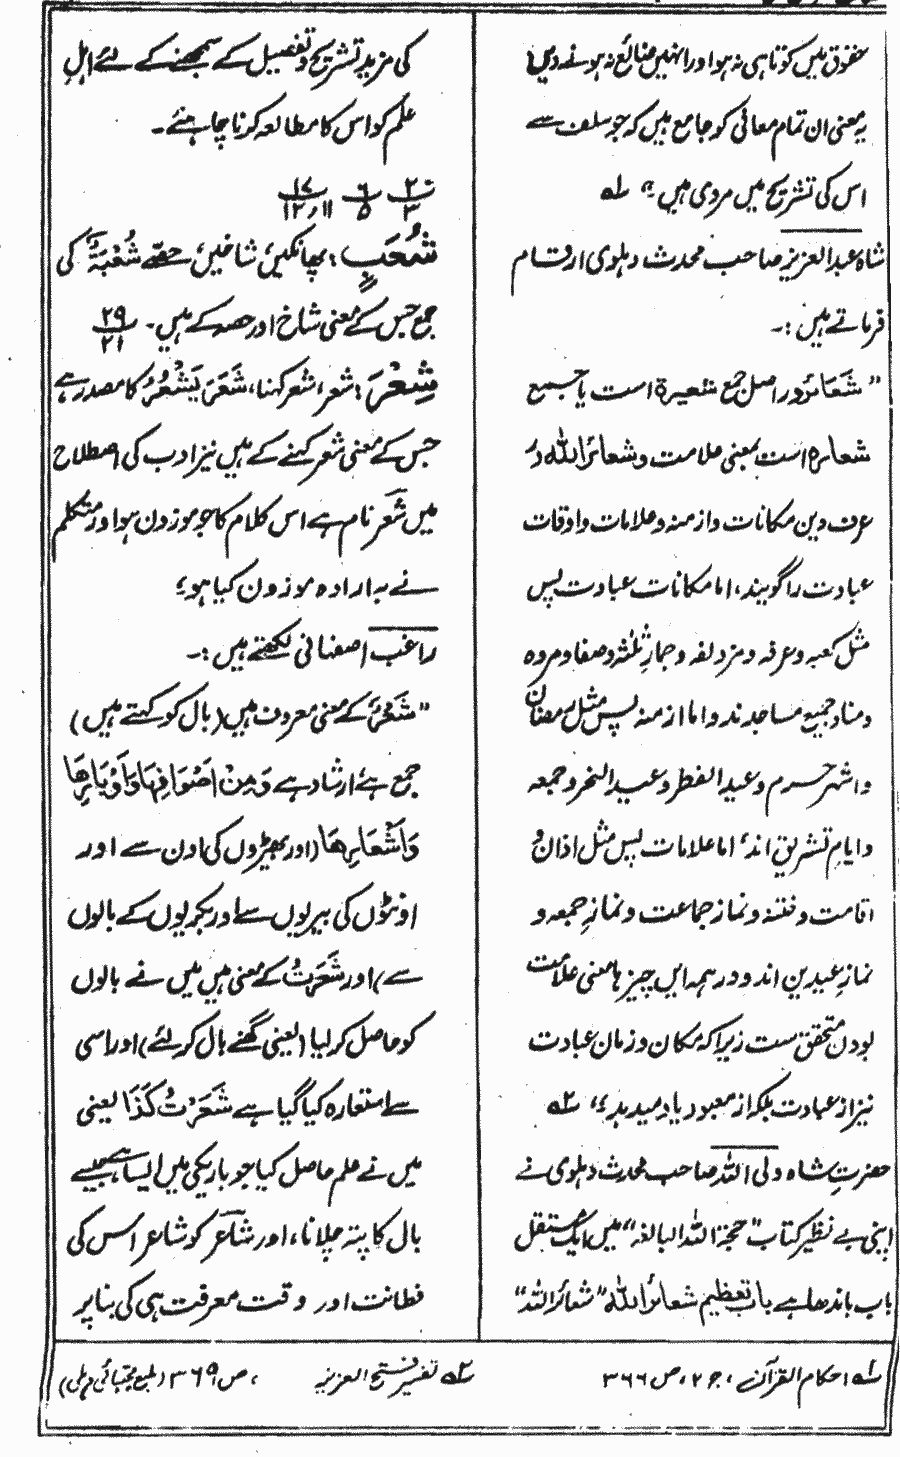 حقوق میں کوتاہی نہ ہو اور انہیں ضائع نہ ہونے دیں
یہ معنی ان تمام معانی کو جامع ہیں کہ جو سلف سے
اس کی تشریح میں مروی ہیں ؛" لہ
شاہ عبدالعزیز صاحب محدث دہلوی ارقام
فرماتے ہیں :۔
" شَعَائر در اصل جمع شعیرۃ است یا جمیع
شعارہ است بمعنی علامت و شعائر اللہ در
عرف دین مکانات و ازمنہ و علامات و اوقات
عبادت را گویند، اما مکانات عبادت پس
مثل کعبہ و عرفہ و مزدلفہ و جمارِ ثلٰثہ و صفا و مروہ
و منا و جمیع مساجد اند و اما ازمنہ پس مثل رمضان
و اشہر حرم و عید الفطر و عید النحر و جمعہ
و ایام تشریق اند، اما علامات پس مثل اذان و
اقامت و ختنہ و نماز جماعت و نمازِ جمعہ و
نمازِ عیدین اند و در ہمہ ایں چیزہا معنی علامت
بودن متحقق ست زیرا کہ مکان و زمان عبادت
نیز از عبادت بلکہ از معبود یاد میدہد ؛" ٢ہ
حضرت شاہ ولی اللہ صاحب محدث دہلوی نے
اپنی بے نظیر کتاب "حجۃ اللہ البالغہ" میں ایک مستقل
باب باندھا ہے باب تعظیم شعائر اللہ "شعائر اللہ"
کی مزید تشریح و تفصیل کے سمجھنے کے لئے اہلِ
علم کو اس کا مطالعہ کرنا چاہئے۔
٢٠/٣ ٦/٥ ١٧/١١،١٢
شُعَبٍ : پھانکیں، شاخیں، حصے شُعْبَۃٌ کی
جمع جس کے معنی شاخ اور حصہ کے ہیں۔ ٢٩/٢١
شِعْرَ : شعر، شعر کہنا، شَعَرَ یَشْعُرُ کا مصدر ہے
جس کے معنی شعر کہنے کے ہیں نیز ادب کی اصطلاح
میں شعر نام ہے اس کلام کا جو موزون ہو اور متکلم
نے بہ ارادہ موزون کیا ہو ؛
راغب اصفہانی لکھتے ہیں :۔
" شَعْرٌ کے معنی معروف ہیں (بال کو کہتے ہیں)
جمع ہے ارشاد ہے وَمِنْ اَصْوَافِهَا وَاَوْبَارِهَا
وَاَشْعَارِهَا (اور بھیڑوں کی اون سے اور
اونٹوں کی ببریوں سے اور بکریوں کے بالوں
سے) اور شَعَرْتُ کے معنی ہیں میں نے بالوں
کو حاصل کر لیا (یعنی گھنے بال کر لئے) اور اسی
سے استعارہ کیا گیا ہے شَعَرْتُ کَذَا یعنی
میں نے علم حاصل کیا جو باریکی میں ایسا ہے جیسے
بال کا پتہ چلانا، اور شاعر کو شاعر اس کی
فطانت اور وقت معرفت ہی کی بنا پر
لہ احکام القرآن، ج ٢، ص ٣٦٦
٢ہ تفسیر فتح العزیز، ص ٣٦٩ (طبع مجتبائی دہلی)